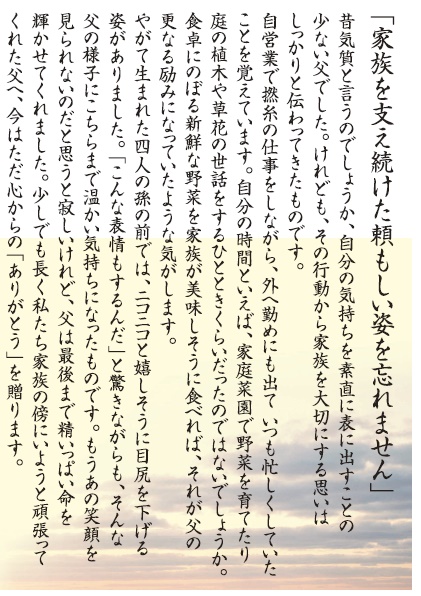 「家族を支え続けた頼もしい姿を忘れません」
昔気質と言うのでしょうか、自分の気持ちを素直に表に出すことの
少ない父でした。けれども、その行動から家族を大切にする思いは
しっかりと伝わってきたものです。
自営業で撚糸の仕事をしながら、外へ勤めにも出て いつも忙しくしていた
ことを覚えています。自分の時間といえば、家庭菜園で野菜を育てたり
庭の植木や草花の世話をするひとときくらいだったのではないでしょうか。
食卓にのぼる新鮮な野菜を家族が美味しそうに食べれば、それが父の
更なる励みになっていたような気がします。
やがて生まれた四人の孫の前では、ニコニコと嬉しそうに目尻を下げる
姿がありました。「こんな表情もするんだ」と驚きながらも、そんな
父の様子にこちらまで温かい気持ちになったものです。もうあの笑顔を
見られないのだと思うと寂しいけれど、父は最後まで精いっぱい命を
輝かせてくれました。少しでも長く私たち家族の傍にいようと頑張って
くれた父へ、今はただ心からの「ありがとう」を贈ります。